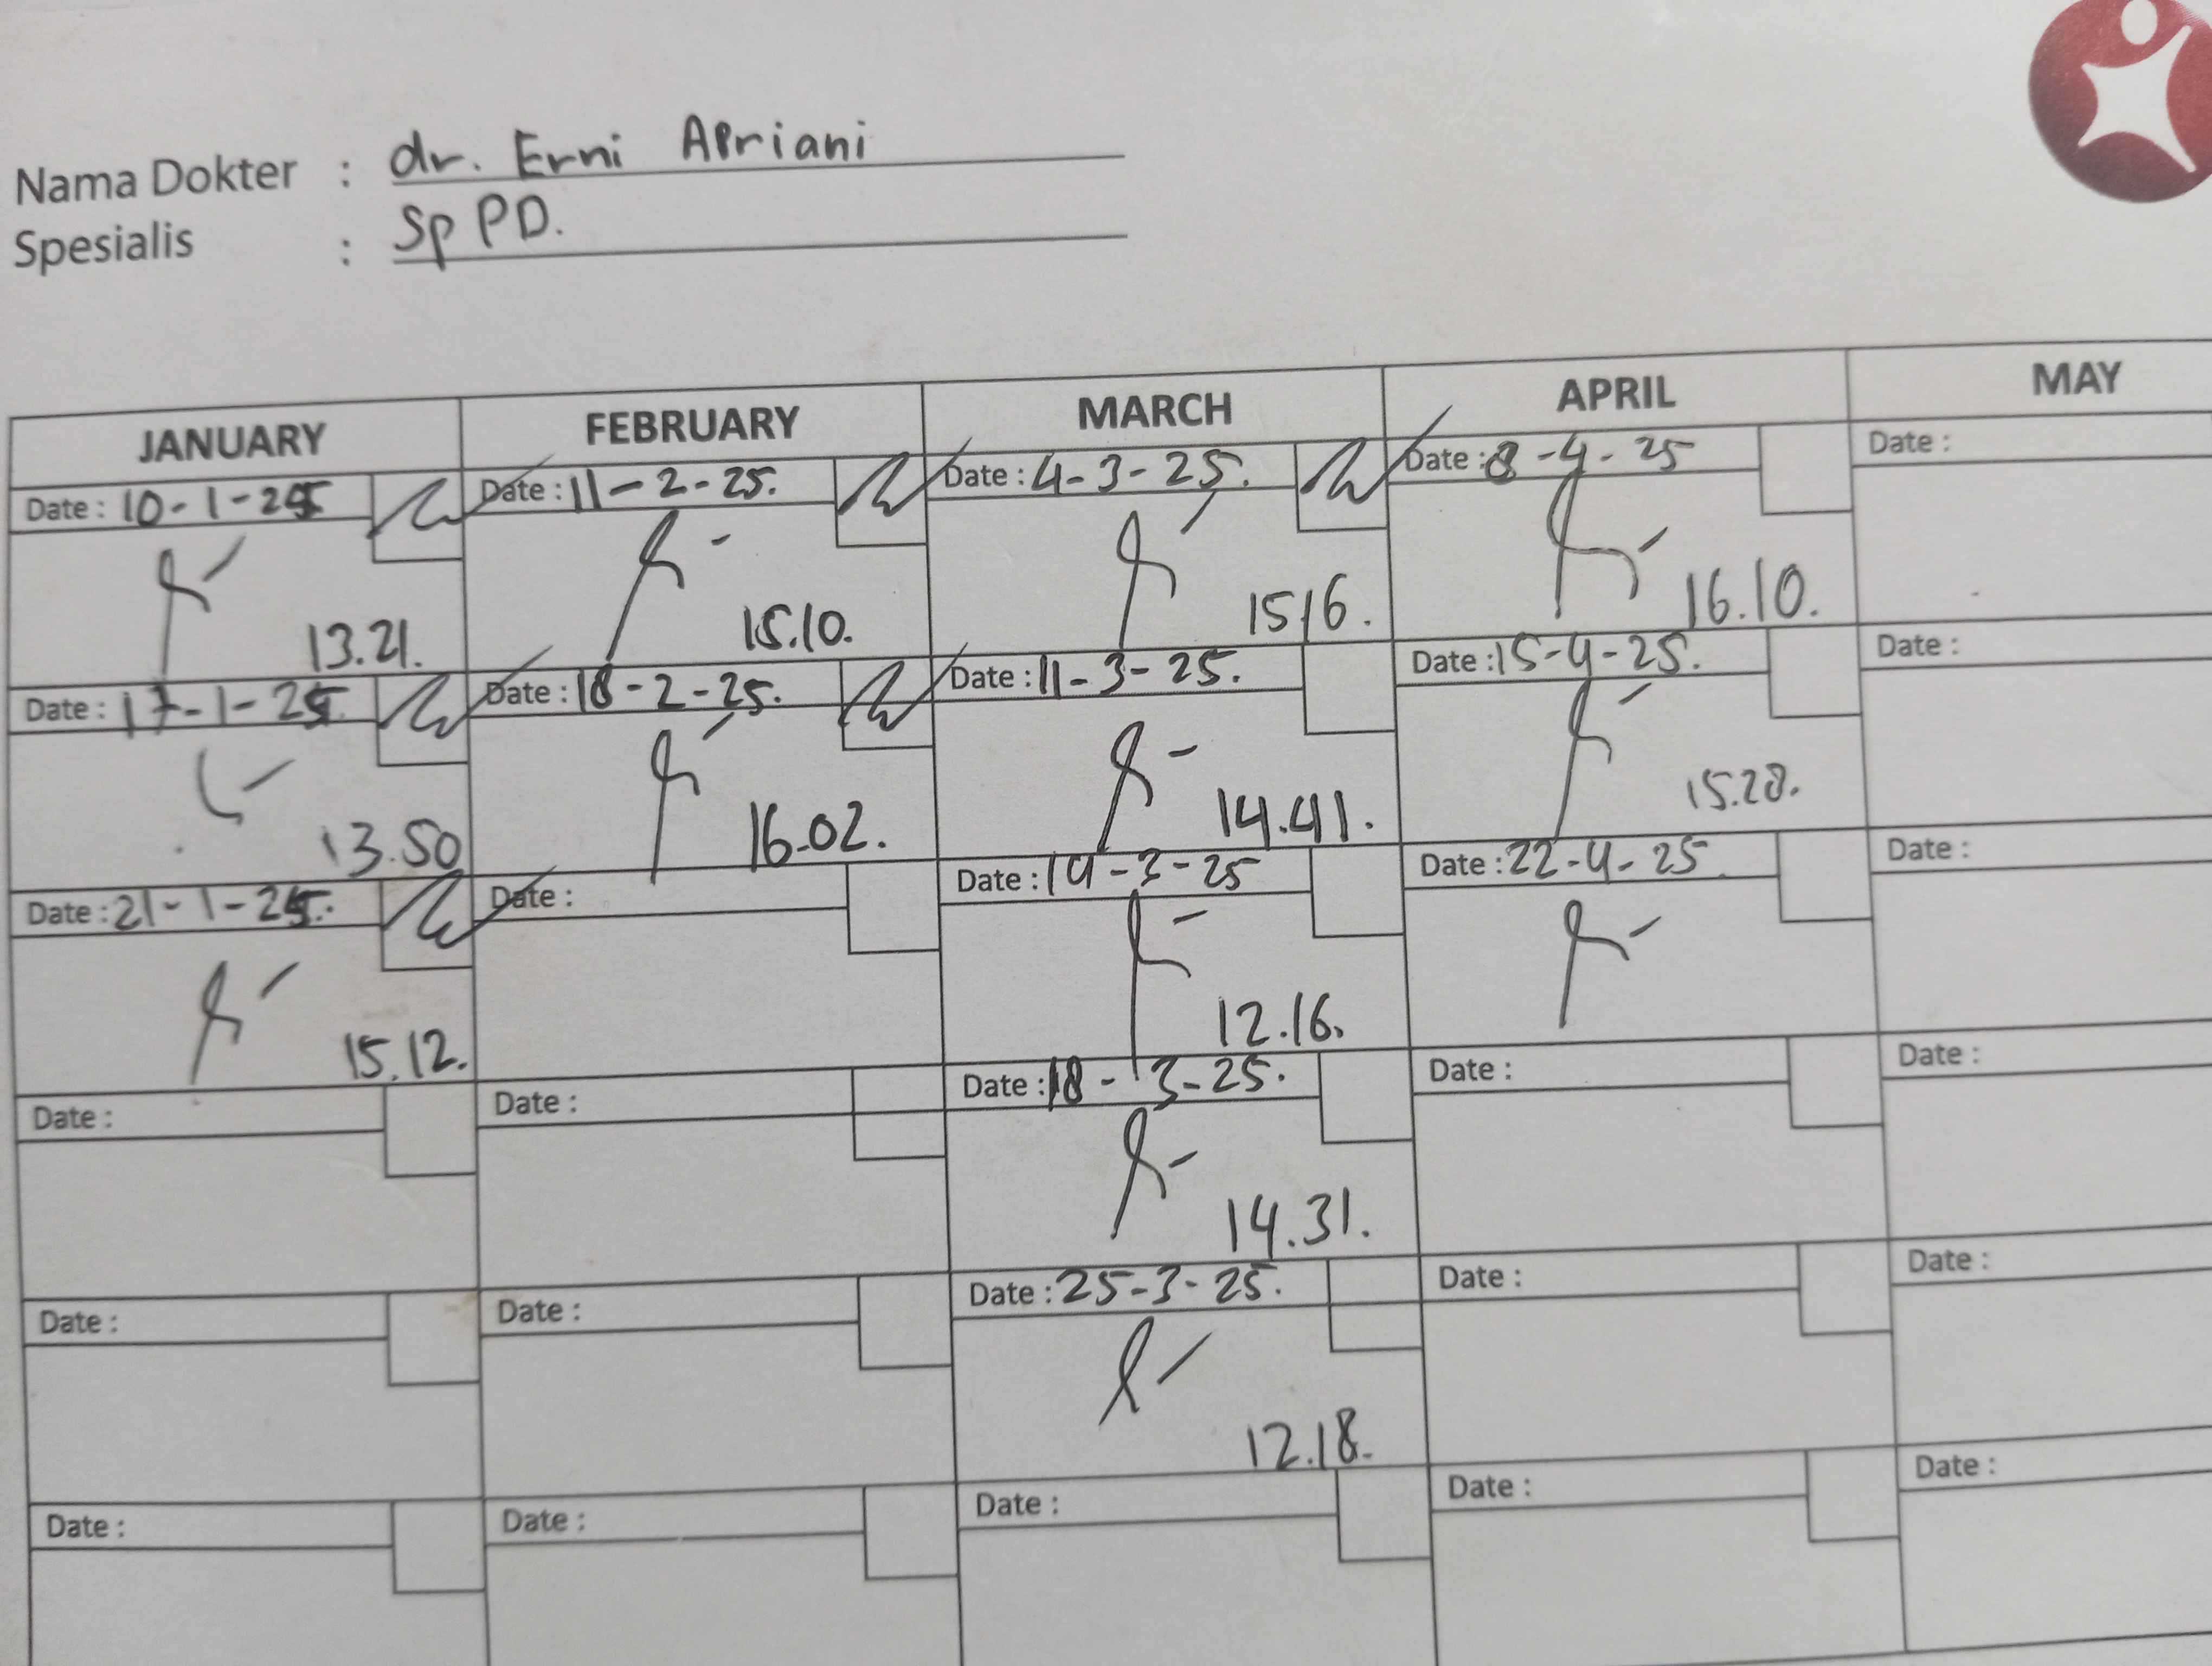 Nama Dokter : dr. Erni Apriani
Spesialis : Sp PD.
JANUARY FEBRUARY MARCH APRIL MAY
Date : 10-1-25 Date : 11-2-25. Date : 4-3-25. Date : 8-4-25 Date :
13.21. 15.10. 15.16. 16.10.
Date : 17-1-25 Date : 18-2-25. Date : 11-3-25. Date : 15-4-25. Date :
13.50 16.02. 14.41. 15.28.
Date : 21-1-25. Date : Date : 14-3-25 Date : 22-4-25. Date :
15.12. 12.16.
Date : Date : Date : 18-3-25. Date : Date :
14.31.
Date : Date : Date : 25-3-25. Date : Date :
12.18.
Date : Date : Date : Date : Date :